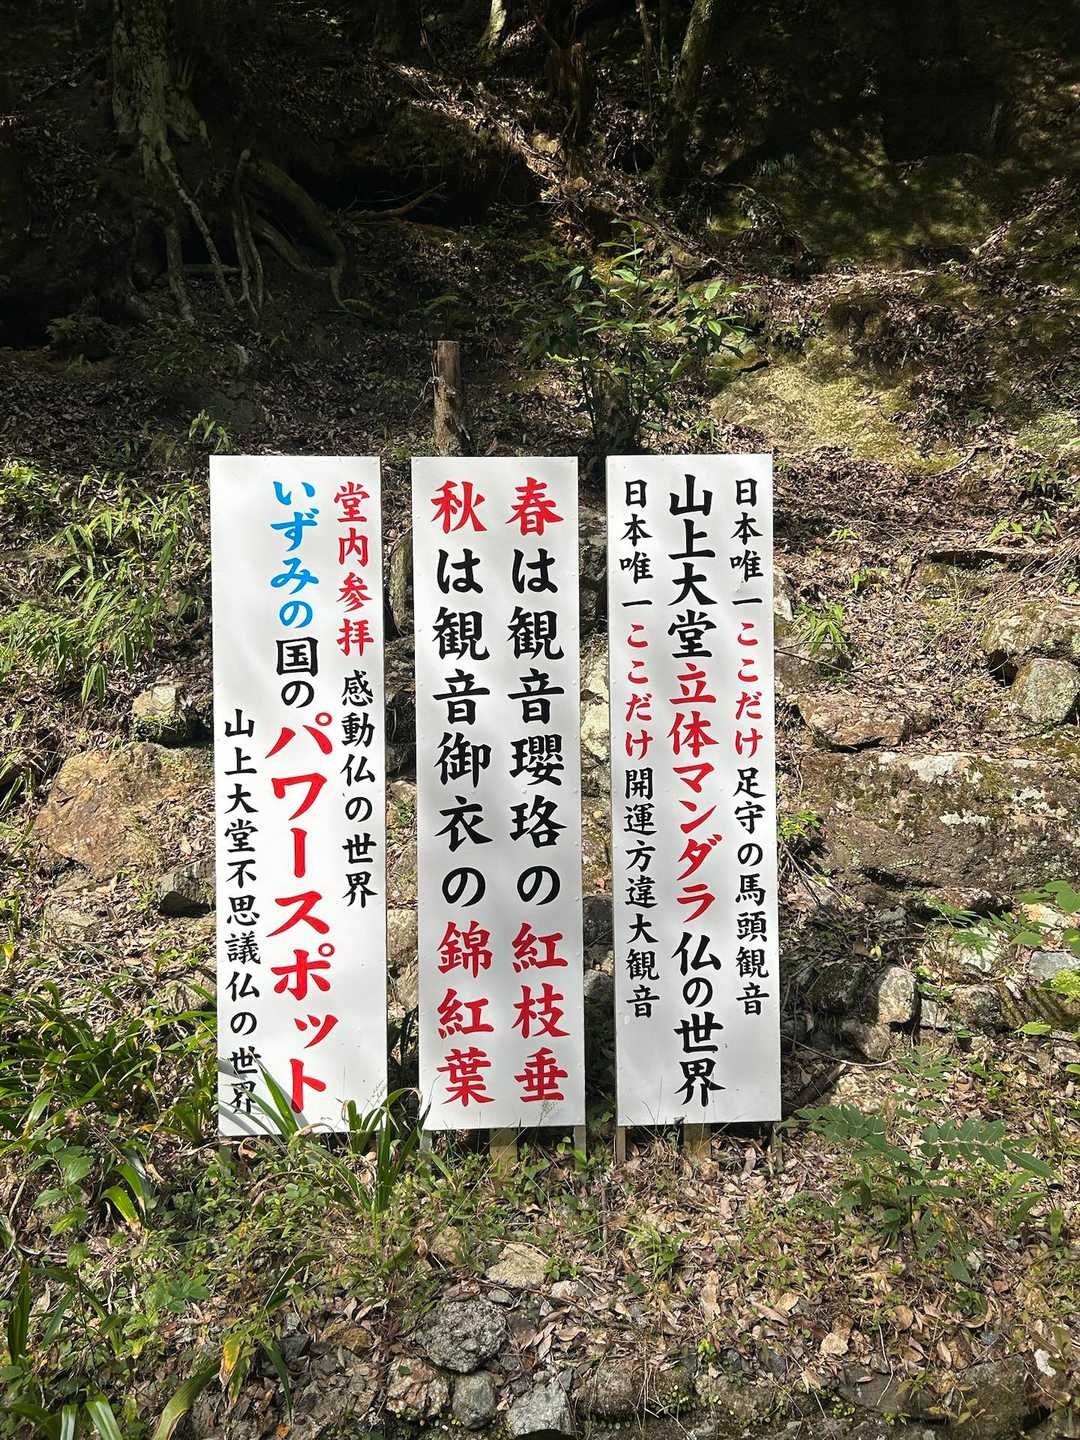 日本唯一ここだけ足守の馬頭観音
山上大堂立体マンダラ仏の世界
日本唯一ここだけ開運方違大観音
春は観音瓔珞の紅枝垂
秋は観音御衣の錦紅葉
堂内参拝 感動仏の世界
いずみの国のパワースポット
山上大堂不思議仏の世界